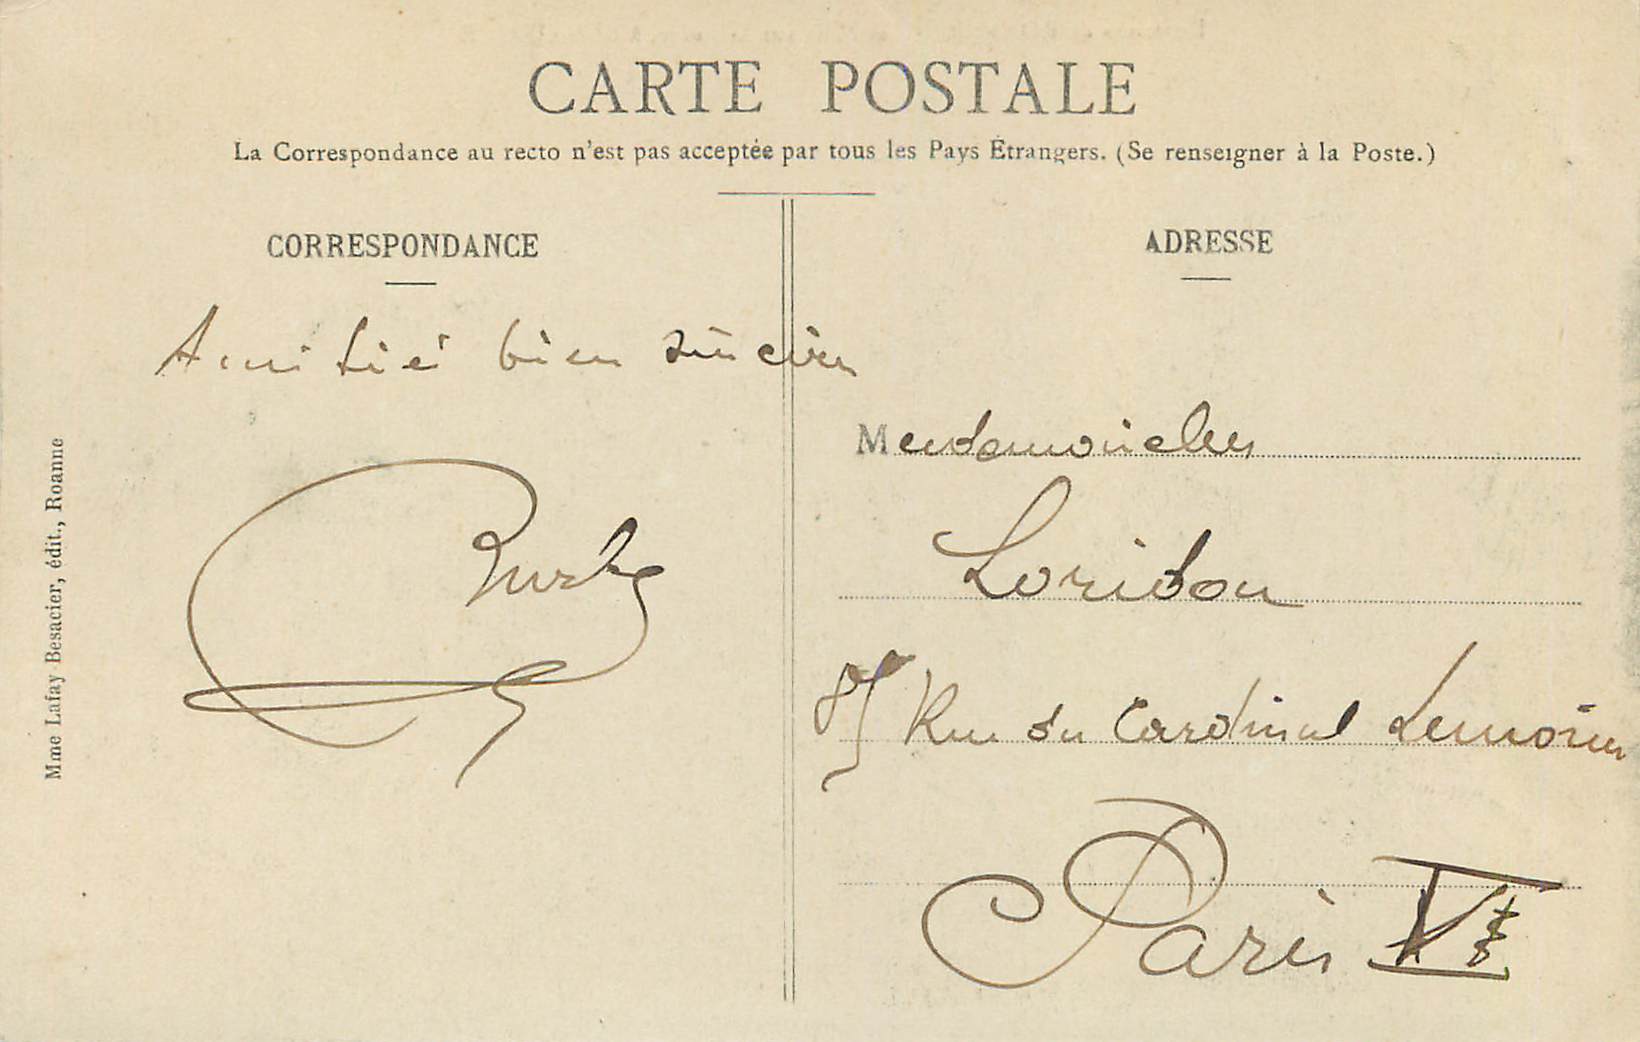 CARTE POSTALE
La Correspondance au recto n'est pas acceptée par tous les Pays Étrangers. (Se renseigner à la Poste.)
CORRESPONDANCE
Amitié bien sincère
Mme Lafay Besacier, édit., Roanne
ADRESSE
Mesdemoiselles
Loridon
Rue du Cardinal Lemoine
Paris